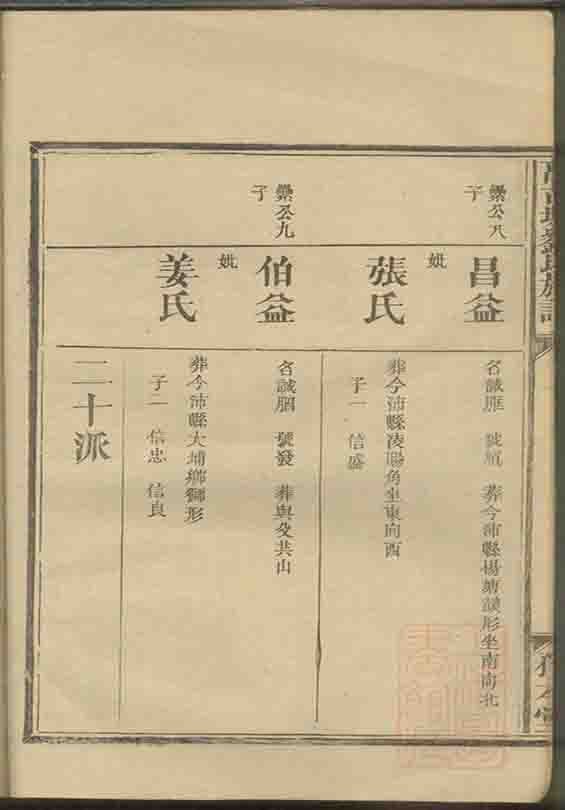 公八
子
昌益
名誠
葬今沛縣楊塘
形坐南向北
妣
張氏
葬今沛縣凌陽角坐東向西
子一 信盛
公九
子
伯益
名誠胭 號發 葬與父共山
妣
姜氏
葬今沛縣大埔鄉獅形
子二 信忠 信良
二十派
氏族